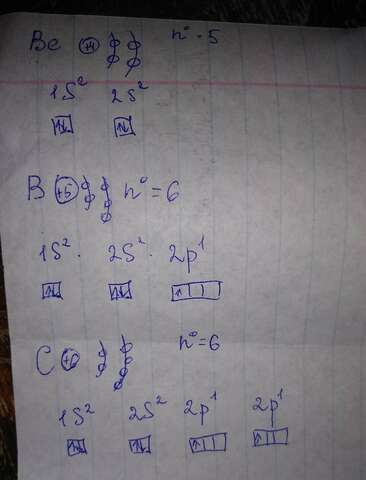 Be +4 n⁰ = 5
1S² 2S²
↑↓ ↑↓
B +5 n⁰ = 6
1S² 2S² 2p¹
↑↓ ↑↓ ↑
C +6 n⁰ = 6
1S² 2S² 2p¹ 2p¹
↑↓ ↑↓ ↑ ↑